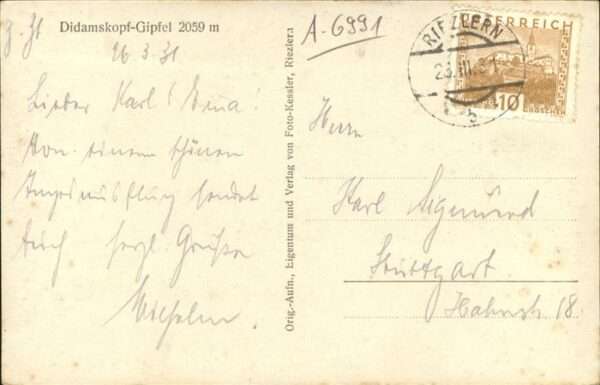 Didamskopf-Gipfel 2059 m
26.3.31
Lieber Karl!
Von einem schönen
sendet
Euch herzl. Grüße
Wilhelm.
Orig.-Aufn., Eigentum und Verlag von Foto-Kessler, Riezlern
A-6991
RIEZLERN
ÖSTERREICH
10
GROSCHEN
Herrn
Karl Sigmund
Stuttgart.
18